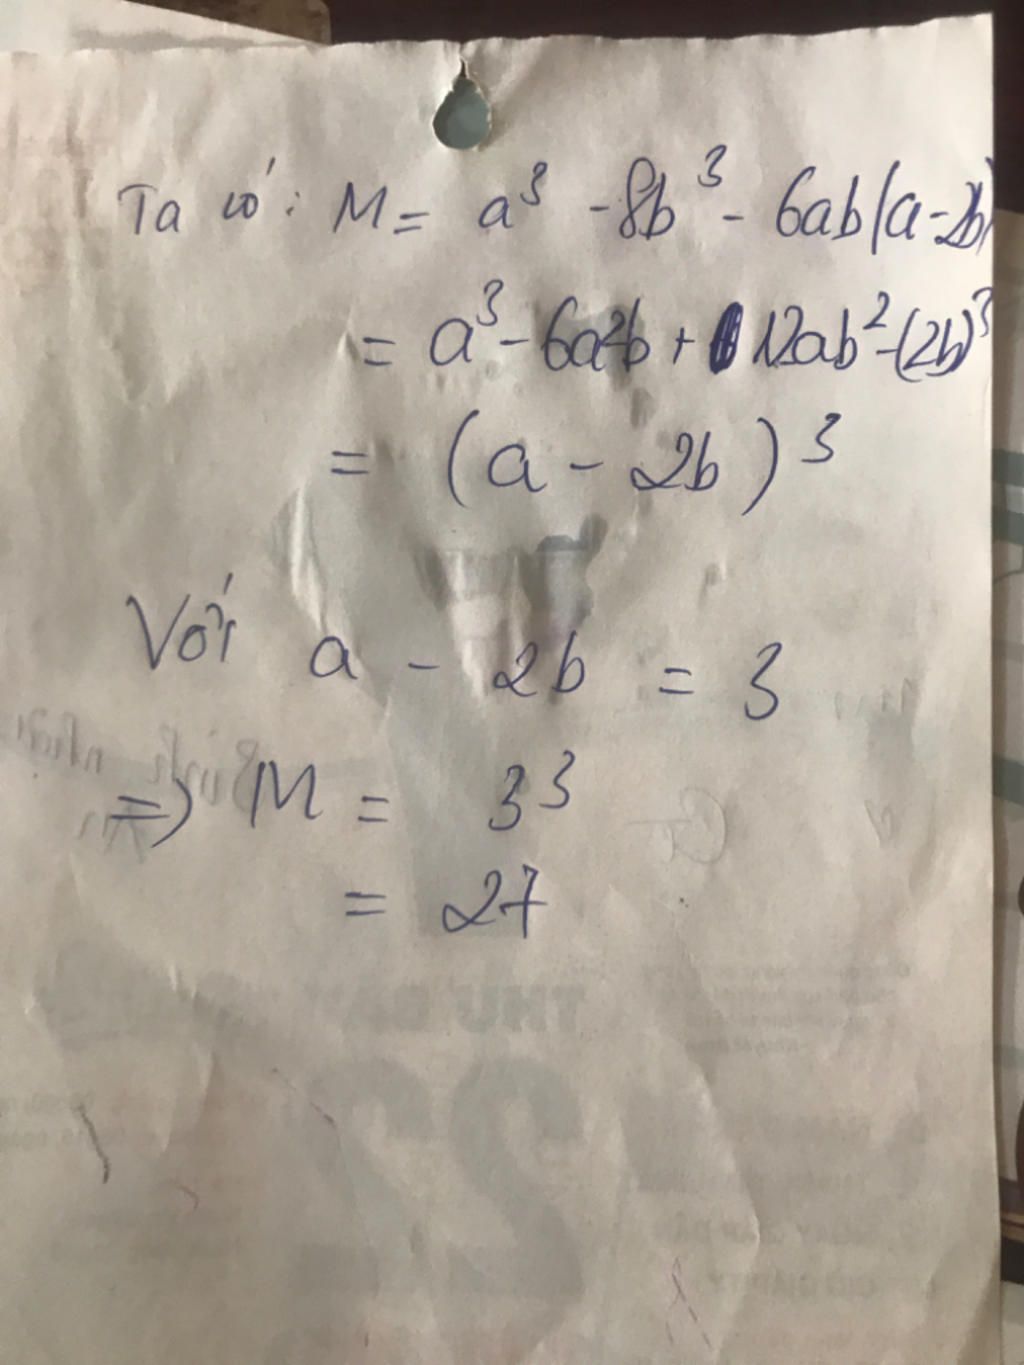 Ta có: M = a³ - 8b³ - 6ab(a-2b)
= a³ - 6a2b + 12ab² - (2b)³
= (a - 2b)³
Với a - 2b = 3
=> M = 3³
= 27